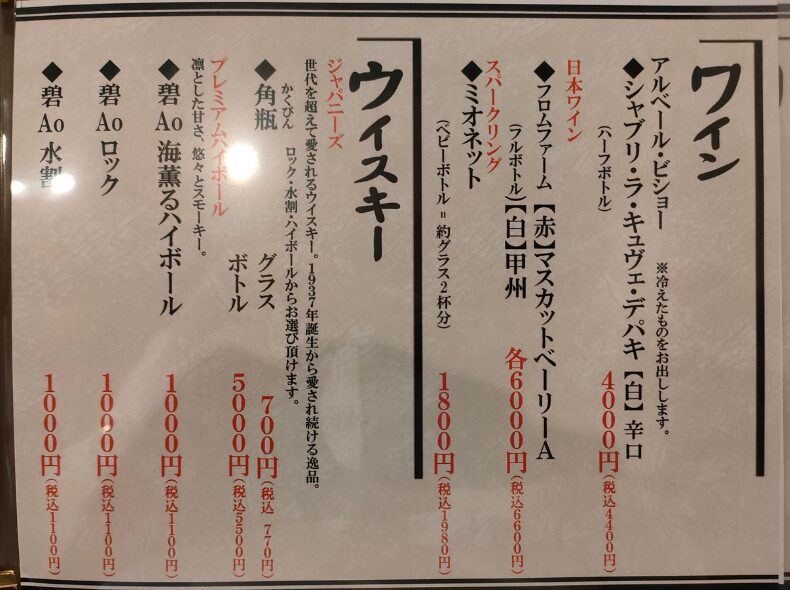 ワイン
アルベール・ビショー ※冷えたものをお出しします。
◆シャブリ・ラ・キュヴェ・デパキ【白】辛口
(ハーフボトル) 4000円(税込4400円)
日本ワイン
◆フロムファーム【赤】マスカットベーリーA
(フルボトル)【白】甲州 各6000円(税込6600円)
スパークリング
◆ミオネット
(ベビーボトル=約グラス2杯分) 1800円(税込1980円)
ウイスキー
ジャパニーズ
世代を超えて愛されるウイスキー。1937年誕生から愛され続ける逸品。
かくびん ロック・水割・ハイボールからお選び頂けます。
◆角瓶 グラス 700円(税込 770円)
ボトル 5000円(税込5500円)
プレミアムハイボール
凛とした甘さ、悠々とスモーキー。
◆碧Ao 海薫るハイボール 1000円(税込1100円)
◆碧Ao ロック 1000円(税込1100円)
◆碧Ao 水割 1000円(税込1100円)